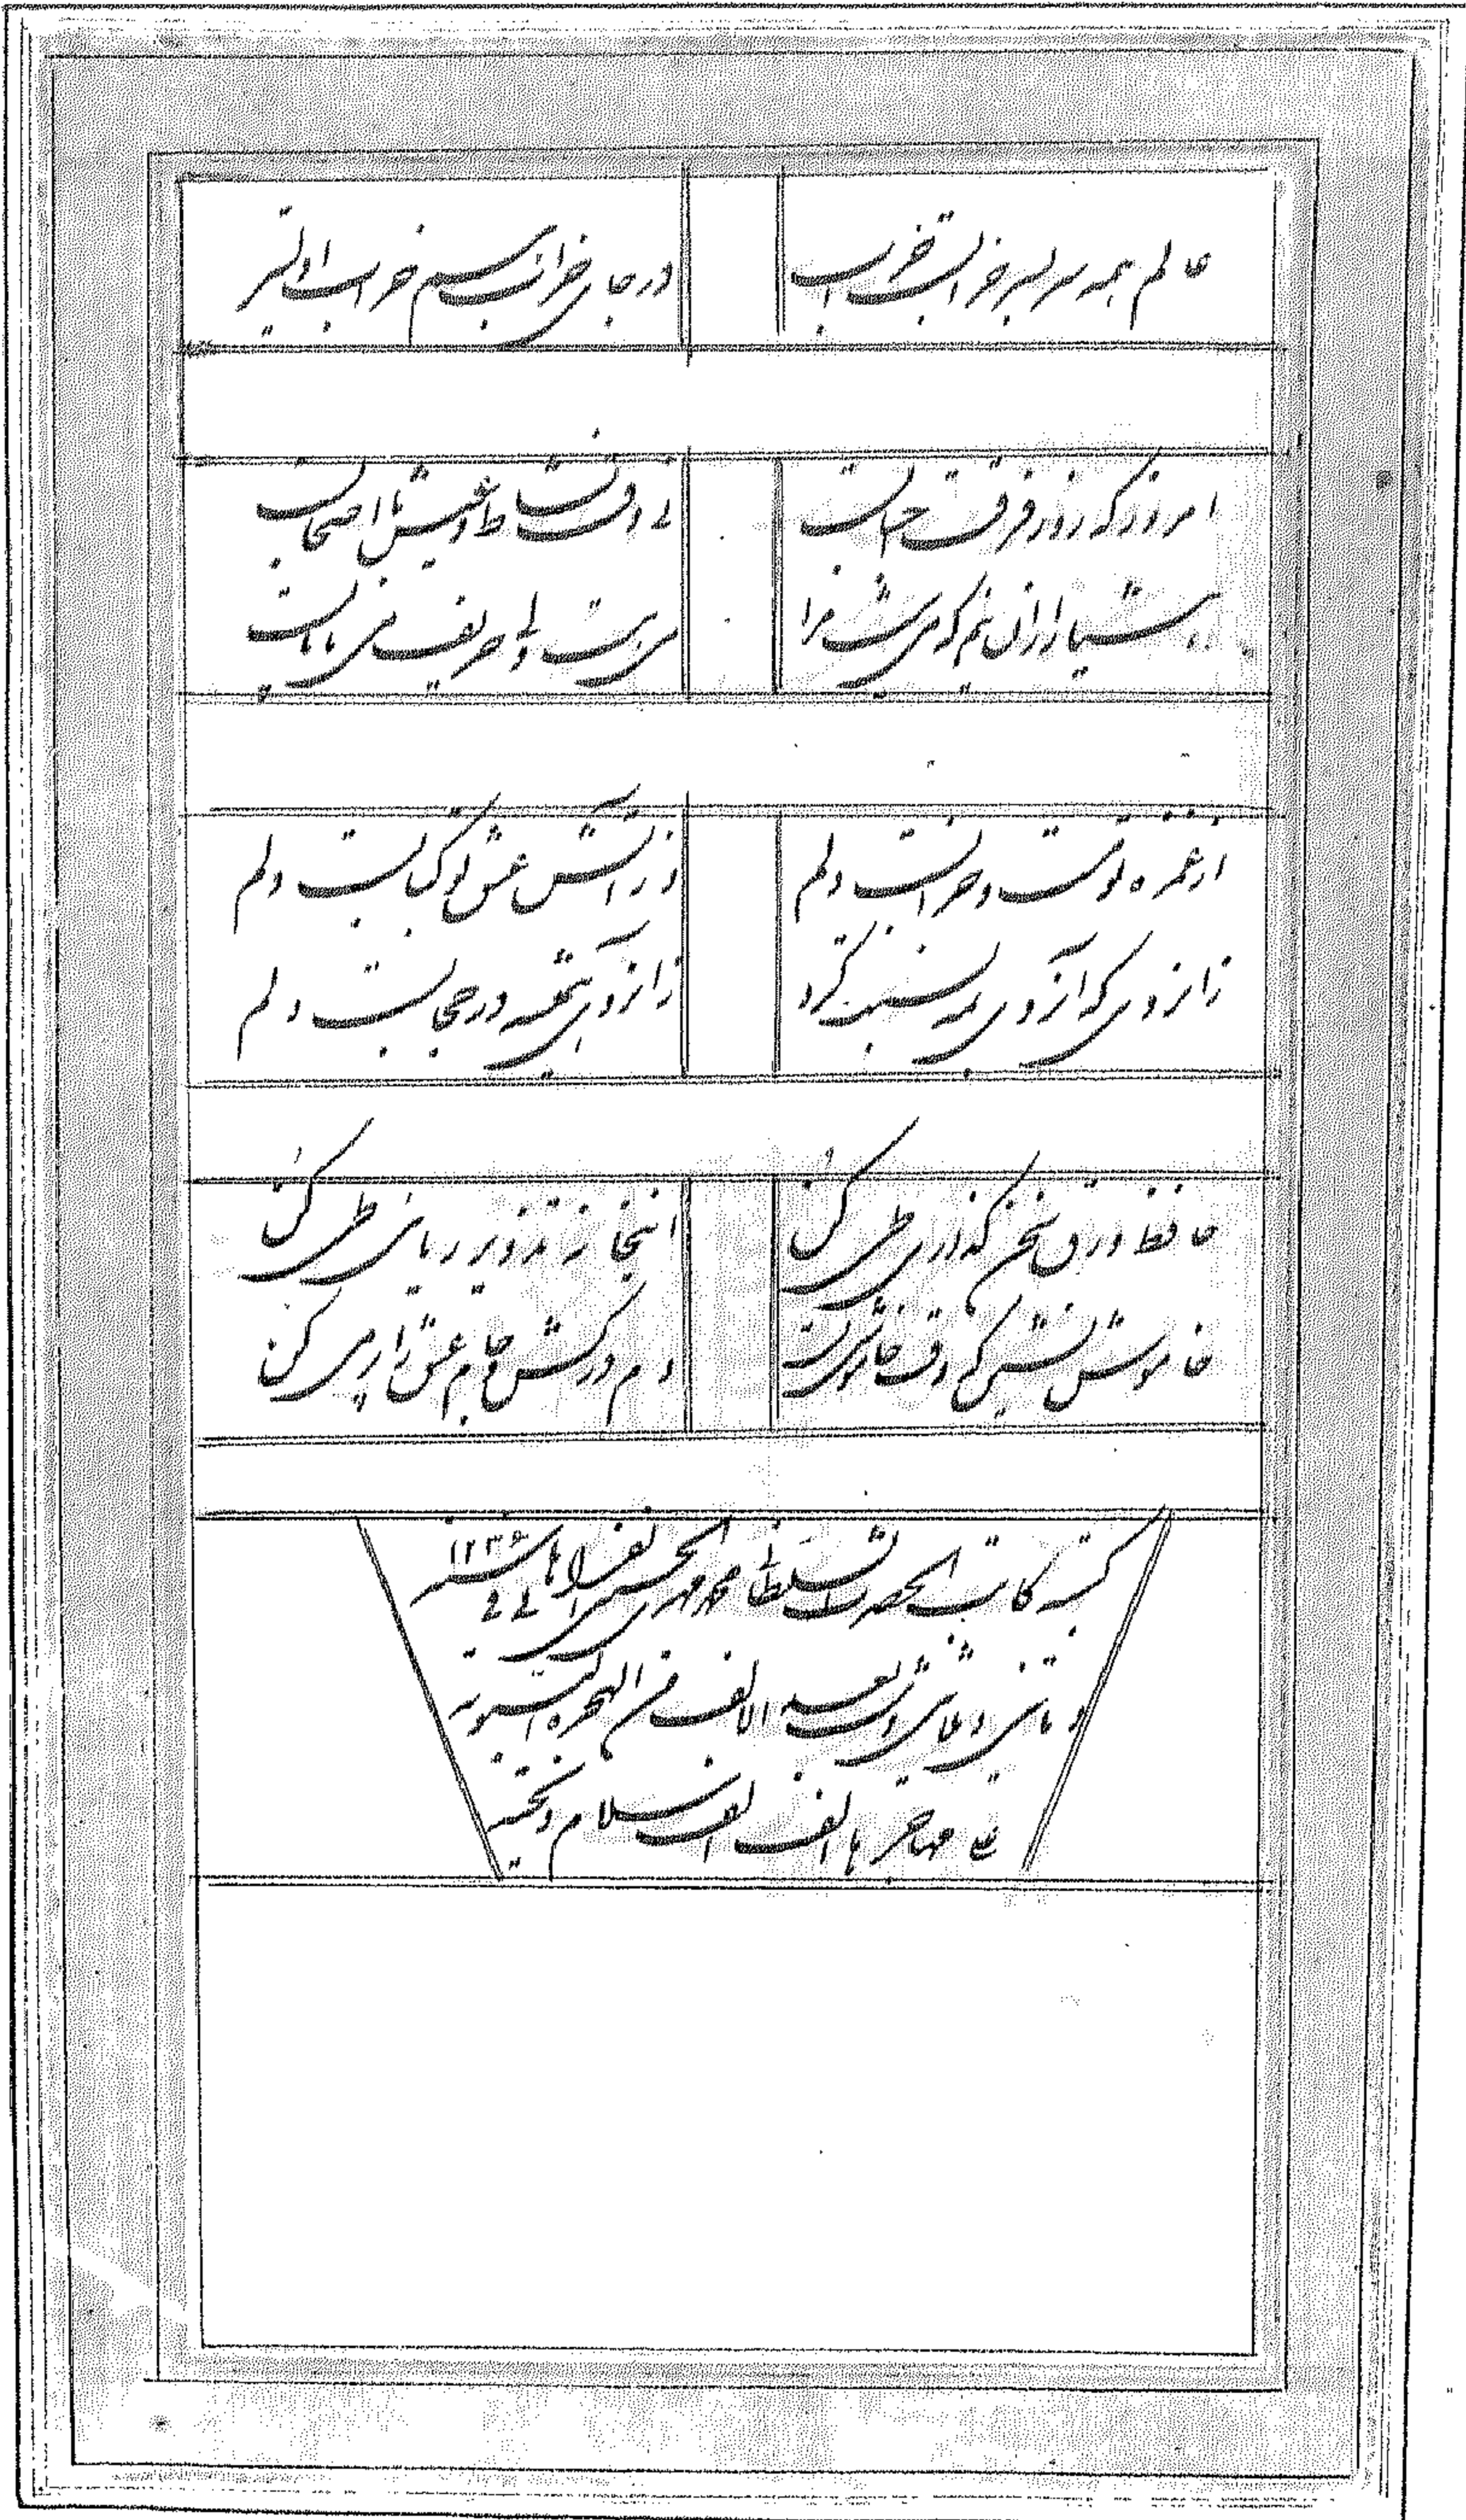 عالم همه سر بسر خرابست خراب
در جای خراب هم خراب اولیتر
امروز که روز فرقت احبابست
نی وقت نشاط و عیش با اصحابست
هشیار از آن نیم که می نیست مرا
می هست ولی حریف می نایابست
از غمزه تو مست و خرابست دلم
وز آتش عشق تو کبابست دلم
زانروی که آنروی بمه نسبت کرد
زانروی همیشه در حجابست دلم
حافظ ورق سخن گذاری طی کن
اینخامه تزویر ریائی طی کن
خاموش نشین که وقت خاموشی تست
دم درکش و جام عشق را پر می کن
کتبه کاتب الحضرت السلطانی محمد مهدی الحسینی الفراهانی فی سنه ۱۲۳۶
الالف من الهجرة النبویة
علی مهاجرها الف الف سلام و تحیة